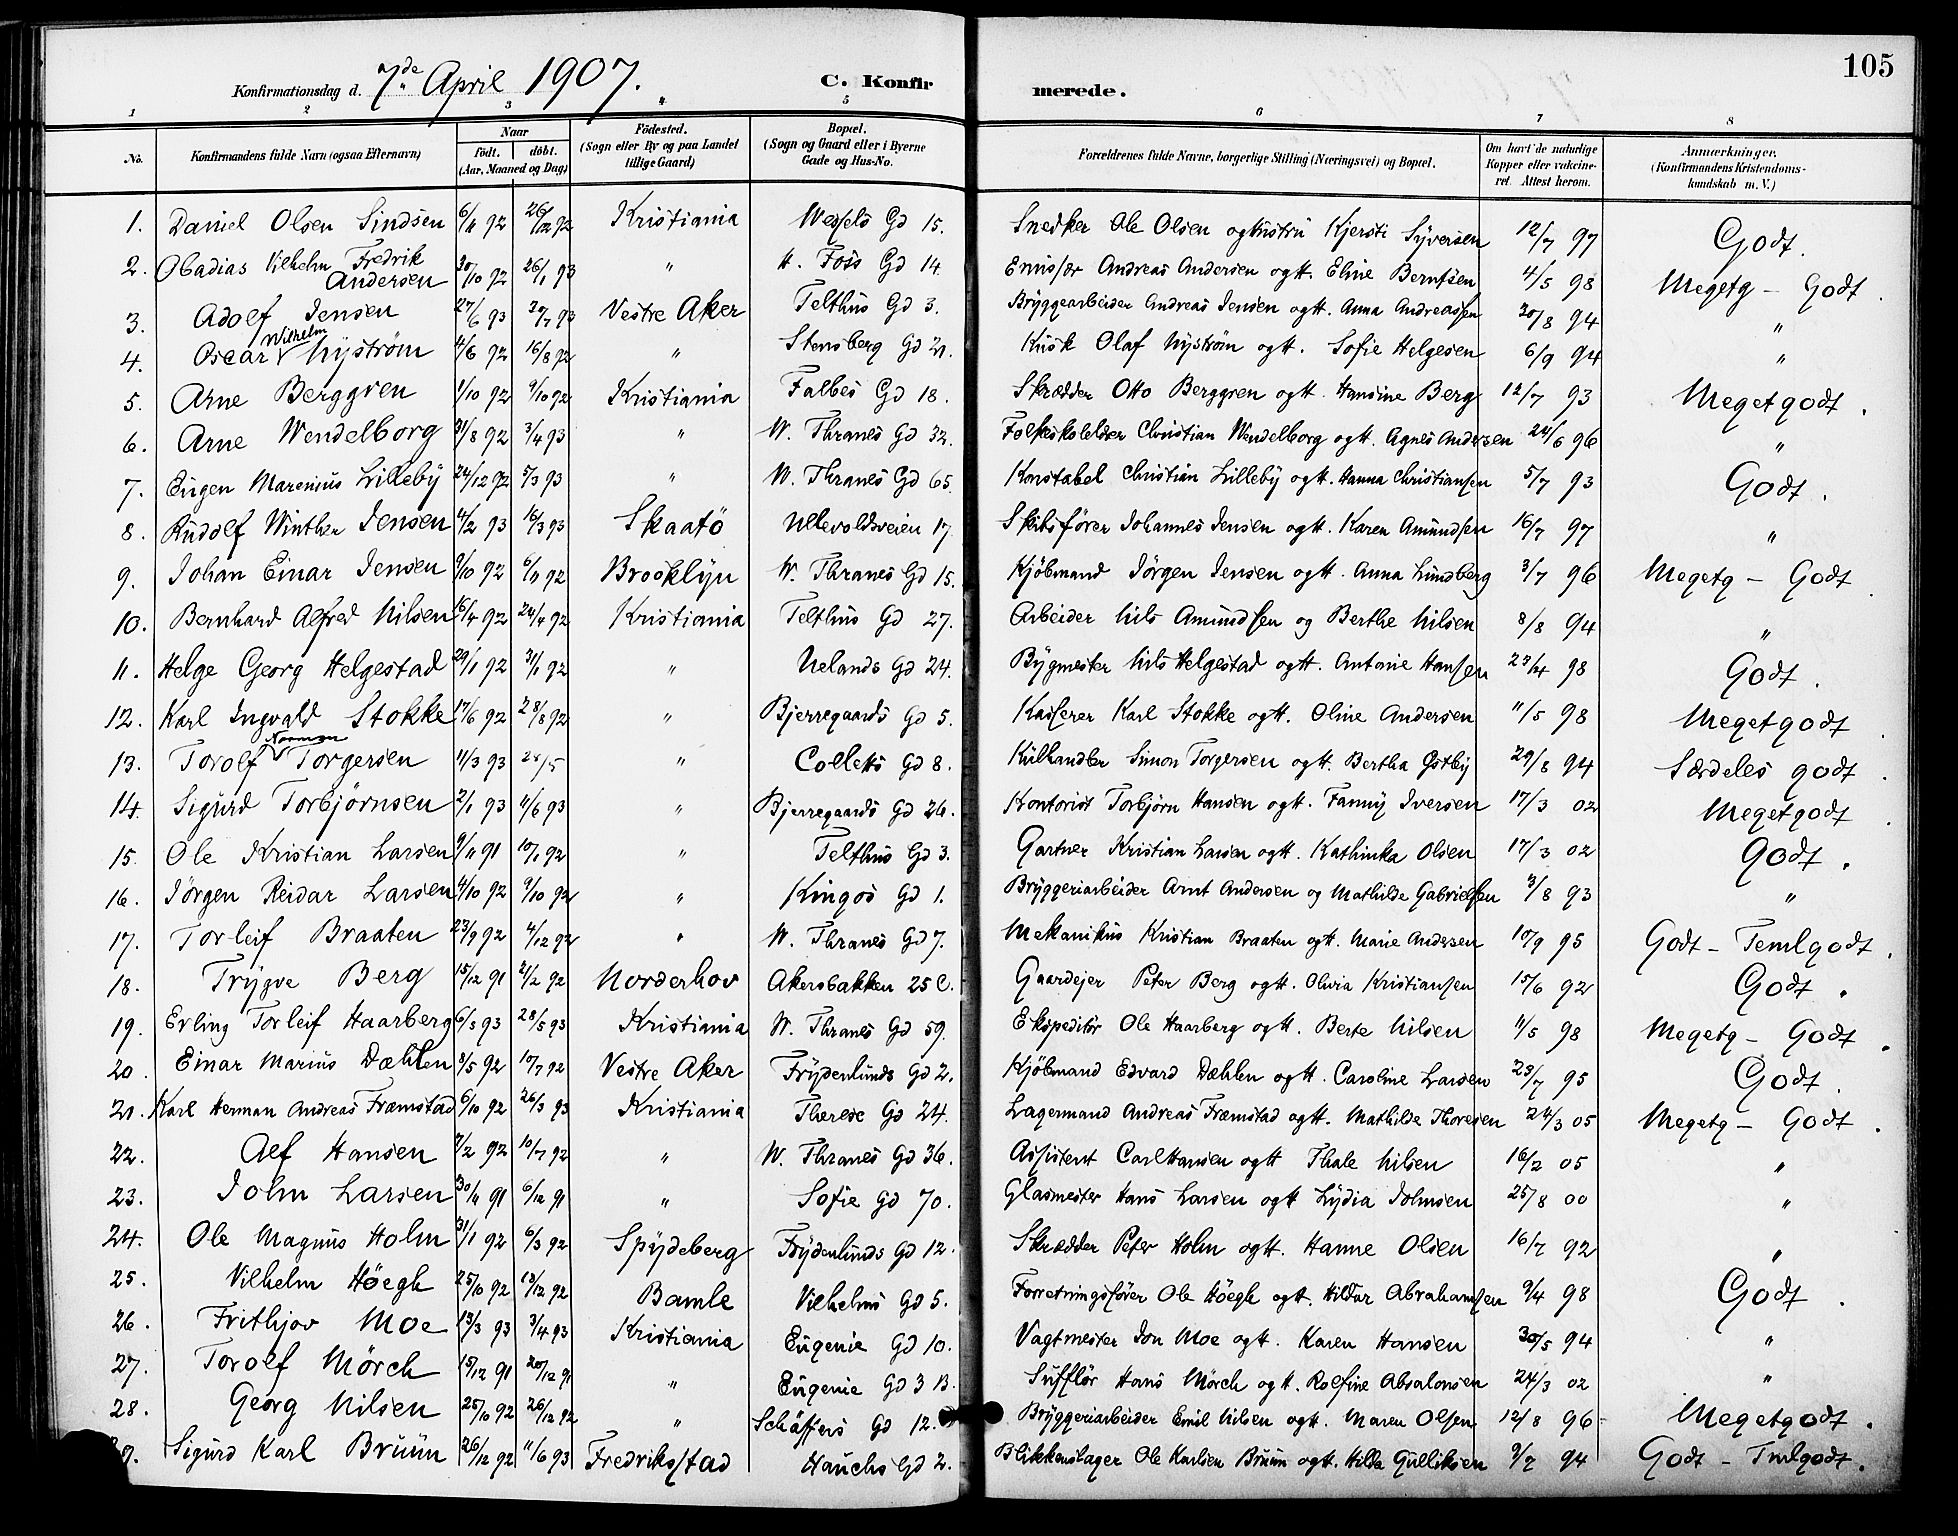 105
Konfirmationsdag d. 7de April 1907. C. Konfirmerede.
1 2 3 4 5 6 7 8
No. Konfirmandens fulde Navn (ogsaa Efternavn) Naar födt. döbt. (Aar, Maaned og Dag) Födested. (Sogn eller By og paa Landet tillige Gaard) Bopæl. (Sogn og Gaard eller i Byerne Gade og Hus-No. Forældrenes fulde Navne, borgerlige Stilling (Næringsvei) og Bopæl. Om havt de naturlige Kopper eller vakcineret. Attest herom. Anmærkninger. (Konfirmandens Kristendomskundskab m. V.)
1. Daniel Olsen Sindsen 6/11 92 26/12 92 Kristiania Wessels Gd 15. Snedker Ole Olsen og hustru Kjersti Syversen 12/7 97 Godt.
2. Obadias Vilhelm Fredrik Andersen 30/10 92 26/1 93 " H. Foss Gd 14 Emissær Andreas Andersen og H. Eline Berntsen 4/5 98 Megetg - Godt.
3. Adolf Jensen 27/6 93 30/7 93 Vestre Aker Telthus Gd 3. Bryggearbeider Andreas Jensen og H. Anna Andreassen 30/8 94 "
4. Oscar Wilhelm Nyström 4/6 92 16/8 92 " Stensberg Gd 21. Kusk Olaf Nyström og H. Sofie Helgesen 6/9 94 "
5. Arne Berggren 1/10 92 9/10 92 Kristiania Falbes Gd 18. Skrædder Otto Berggren og H. Hansine Berg 12/7 93 Megetgodt.
6. Arne Wendelborg 31/8 92 3/4 93 " W. Thranes Gd 32. Christian Wendelborg og H. Agnes Andersen 22/6 96 "
7. Eugen Marenius Lilleby 24/12 92 5/3 93 " W. Thranes Gd 65. Konstabel Christian Lilleby og H. Hanna Christiansen 5/7 93 Godt.
8. Rudolf Winther Jensen 4/2 93 16/3 93 Skaatö Ullevoldsveien 17 Skibsförer Johannes Jensen og H. Karen Amundsen 16/7 97 "
9. Johan Einar Jensen 9/10 92 6/11 92 Brooklyn W. Thranes Gd 15. Kjöbmand Jörgen Jensen og H. Anna Lundberg 3/7 96 Megetg - Godt
10. Bernhard Alfred Nilsen 16/4 92 24/4 92 Kristiania Telthus Gd 27. Arbeider Nils Amundsen og Berthe Nilsen 8/8 94 "
11. Helge Georg Helgestad 29/1 92 31/1 92 " Uelands Gd 24. Bygmester Nils Helgestad og H. Antonie Hansen 23/4 98 Godt.
12. Karl Ingvald Stokke 17/6 92 28/8 92 " Bjerregaards Gd 5. Kasserer Karl Stokke og H. Oline Andersen 11/5 98 Megetgodt
13. Torolf Norman Torgersen 11/3 93 28/5 " Colletts Gd 8. Kulhandler Simon Torgersen og H. Bertha Östby 29/8 94 Særdeles godt.
14. Sigurd Torbjörnsen 2/1 93 11/6 93 " Bjerregaards Gd 26. Kontorist Torbjörn Hansen og H. Fanny Iversen 17/3 02 Megetgodt
15. Ole Kristian Larsen 9/11 91 10/1 92 " Telthus Gd 3. Gartner Kristian Larsen og H. Kathinka Olsen 17/3 02 Godt.
16. Jörgen Reidar Larsen 4/10 92 9/10 92 " Kingos Gd 1. Bryggeriarbeider Arnt Andersen og Mathilde Gabrielsen 3/8 93 "
17. Torleif Braaten 23/9 92 4/12 92 " W. Thranes Gd 7. Mekanikus Kristian Braaten og H. Marie Andersen 10/9 95 Godt - Temlgodt.
18. Trygve Berg 15/12 91 21/2 92 Norderhov Akersbakken 25 C. Gaardejer Peter Berg og H. Olivia Kristiansen 15/6 92 Godt.
19. Erling Torleif Haarberg 6/3 93 28/5 93 Kristiania W. Thranes Gd 59. Ekspeditör Ole Haarberg og H. Berte Nilsen 11/5 98 Megetg - Godt.
20. Einar Marius Dæhlen 8/5 92 10/7 92 Vestre Aker Frydenlunds Gd 2. Kjöbmand Edvard Dæhlen og H. Caroline Larsen 23/7 95 Godt.
21. Karl Herman Andreas Fræmstad 6/10 92 26/3 93 Kristiania Therese Gd 24. Lagermand Andreas Fræmstad og H. Mathilde Thoresen 24/3 05 Megetg - Godt.
22. Alf Hansen 7/2 92 10/7 92 " W. Thranes Gd 36. Assistent Carl Hansen og H Thale Nilsen 16/2 05 "
23. John Larsen 30/11 91 6/12 91 " Sofie Gd 70. Glasmester Hans Larsen og H Lydia Johnsen 25/8 00 "
24. Ole Magnus Holm 31/1 92 6/3 92 Spydeberg Frydenlunds Gd 12. Skrædder Peter Holm og H. Hanne Olsen 16/7 92 "
25. Vilhelm Höegh 25/10 92 13/12 92 Bamle Vilhelms Gd 5. Forretningsförer Ole Höegh og H. Hildur Abrahamsen 9/4 98 Godt.
26. Frithjov Moe 13/3 93 3/4 93 Kristiania Eugenie Gd 10. Vagtmester Jon Moe og H. Karen Hansen 30/5 94 "
27. Torolf Mörch 15/12 91 20/12 91 " Eugenie Gd 3 B. Sufflör Hans Mörch og H. Rolfine Absalonsen 24/3 02 "
28. Georg Nilsen 25/10 92 26/12 92 " Schäffers Gd 12. Bryggeriarbeider Emil Nilsen og H. Maren Olsen 12/8 96 Megetgodt.
Sigurd Karl Bruun 26/12 92 11/6 93 Fredriksstad Hauchs Gd 2. Blikkenslager Ole Karlsen Bruun og H. Hilda Gulliksen 9/7 94 Godt - Tmlgodt.